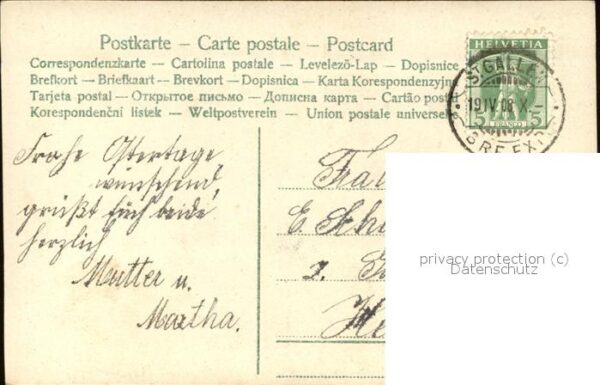 Postkarte — Carte postale — Postcard
Correspondenzkarte — Cartolina postale — Levelező-Lap — Dopisnice
Brefkort — Briefkaart — Brevkort — Dopisnica — Karta Korespondenzyjna
Tarjeta postal — Открытое письмо — Дописна карта — Cartão postal
Korespondenční listek — Weltpostverein — Union postale universelle
HELVETIA
5 FRANCO 5
ST. GALLEN
19.IV.08.X-
BRF. EXP.
Frohe Ostertage
wünschend,
grüßt Euch beide
herzlich
Mutter u.
Martha.
E.
z.
privacy protection (c)
Datenschutz